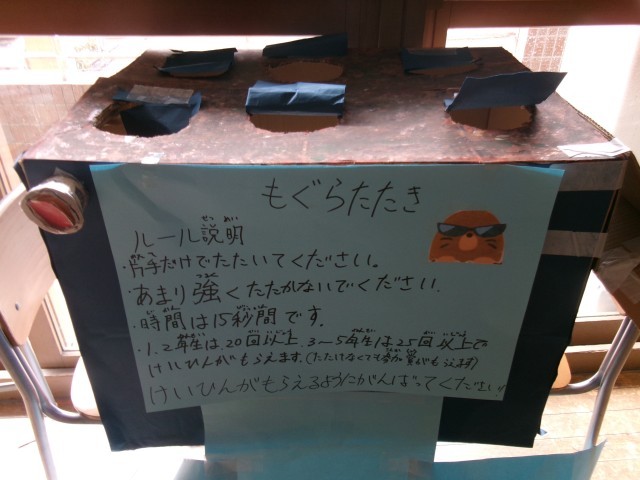 もぐらたたき
ルール説明
・片手だけでたたいてください。
・あまり強くたたかないでください。
・時間は15秒間です。
・1.2年生は20回以上 3〜5年生は25回以上で
けいひんがもらえます。(たたけなくても参加賞がもらえます)
けいひんがもらえるようにがんばってください!!